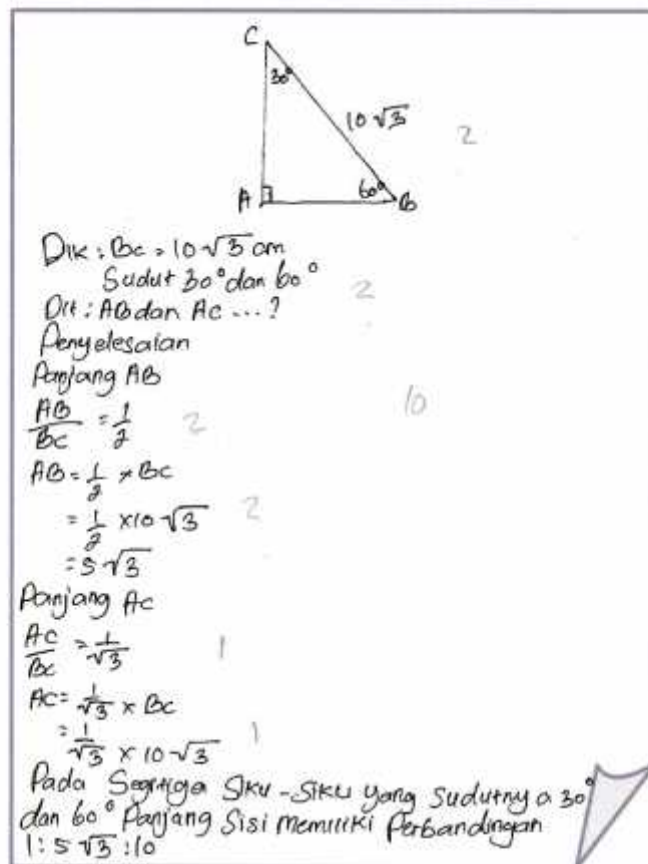 C
30°
10√3
2
A
60°
B
Dik : BC = 10√3 cm
Sudut 30° dan 60°
2
Dit : AB dan AC ...?
Penyelesaian
Panjang AB
10
AB/BC = 1/2
2
AB = 1/2 × BC
= 1/2 × 10√3
2
= 5√3
Panjang AC
AC/BC = 1/√3
1
AC = 1/√3 × BC
= 1/√3 × 10√3
1
Pada Segitiga Siku-Siku yang sudutnya 30°
dan 60° Panjang Sisi memiliki Perbandingan
1 : 5√3 : 10